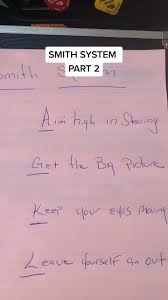 SMITH SYSTEM
PART 2
Smith System
Aim high in Steering
Get the Big Picture
Keep your eyes moving
Leave yourself an out